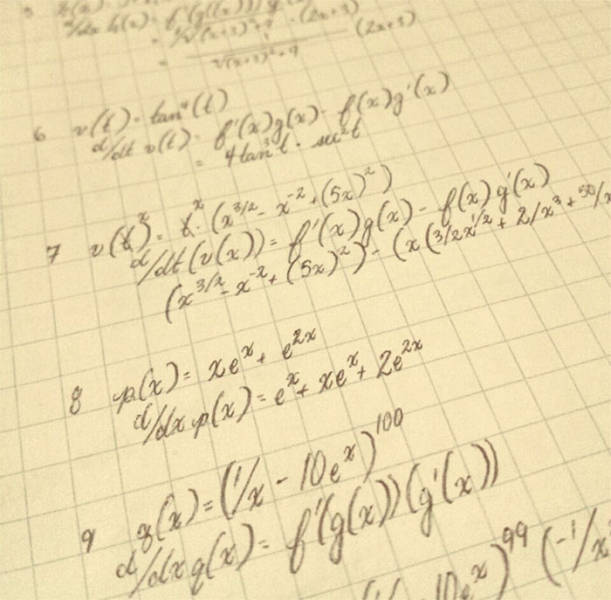 6 v(t) = tan⁴(t)
d/dt v(t) = f'(x)g(x) - f(x)g'(x)
= 4tan³t · sec²t
7 v(x) = x · (x^3/2 - x^-2 + (5x)^2)
d/dt(v(x)) = f'(x)g(x) - f(x)g'(x)
(x^3/2 - x^-2 + (5x)^2) - (x(3/2x^1/2 + 2/x^3 + 50/x
8 p(x) = xe^x + e^2x
d/dx p(x) = e^x + xe^x + 2e^2x
9 q(x) = (1/x - 10e^x)^100
d/dx q(x) = f'(g(x))(g'(x))
10e^x)^99 (-1/x